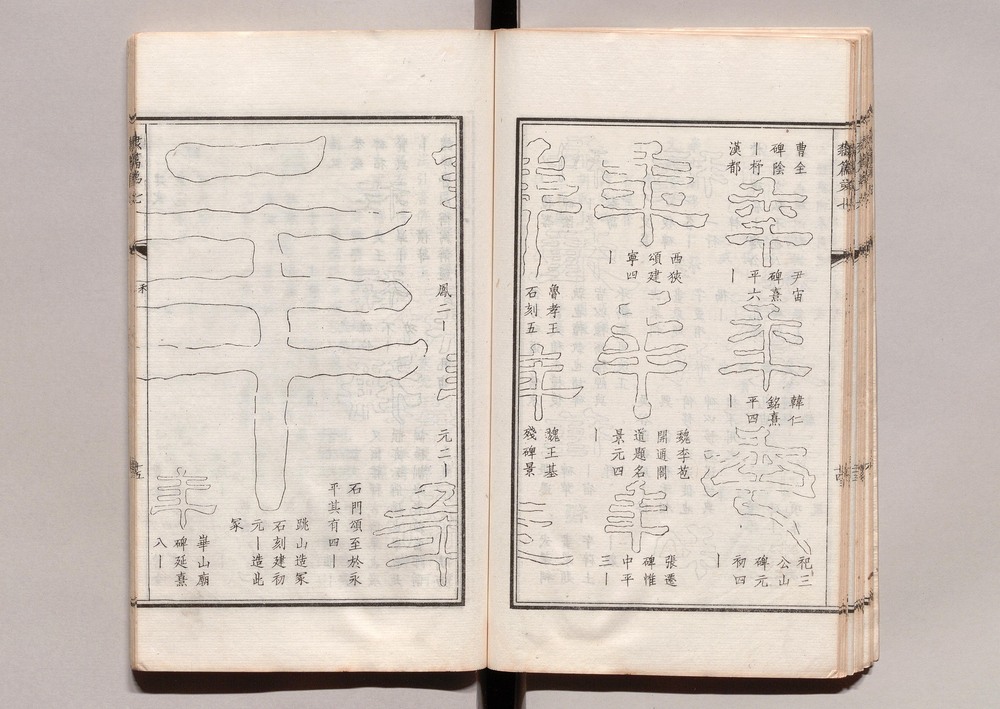 曹全
碑陰
｜杼
漢都
尹宙
碑熹
平六
｜
韓仁
銘熹
平四
｜
祀三
公山
碑元
初四
｜
西狹
頌建
寧四
｜
魏李苞
開通閣
道題名
景元四
｜
張遷
碑惟
中平
三｜
魯孝王
石刻五
鳳二｜
魏王基
殘碑景
元二｜
石門頌至於永
平其有四｜
跳山造冢
石刻建初
元｜造此
冢
華山廟
碑延熹
八｜
禾